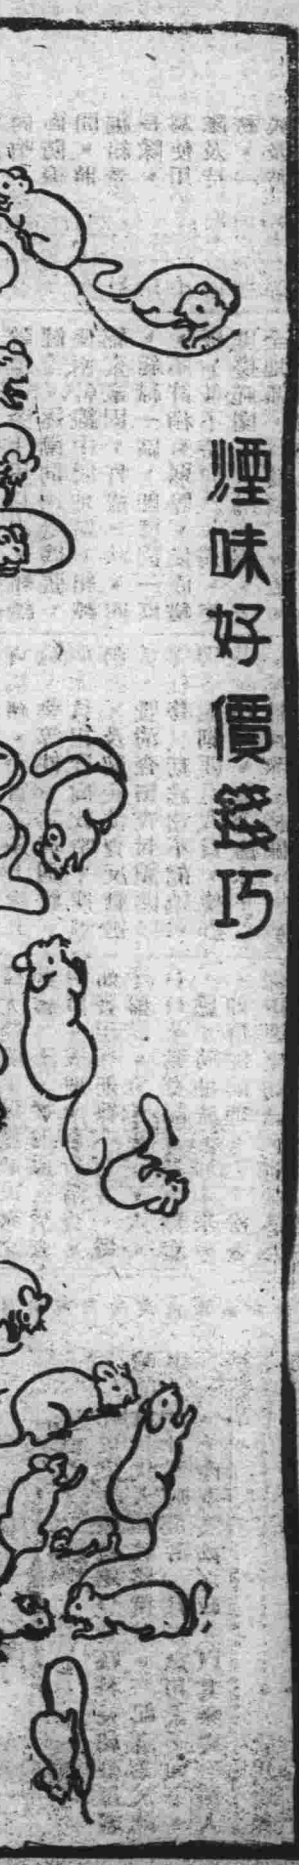 煙味好價錢巧